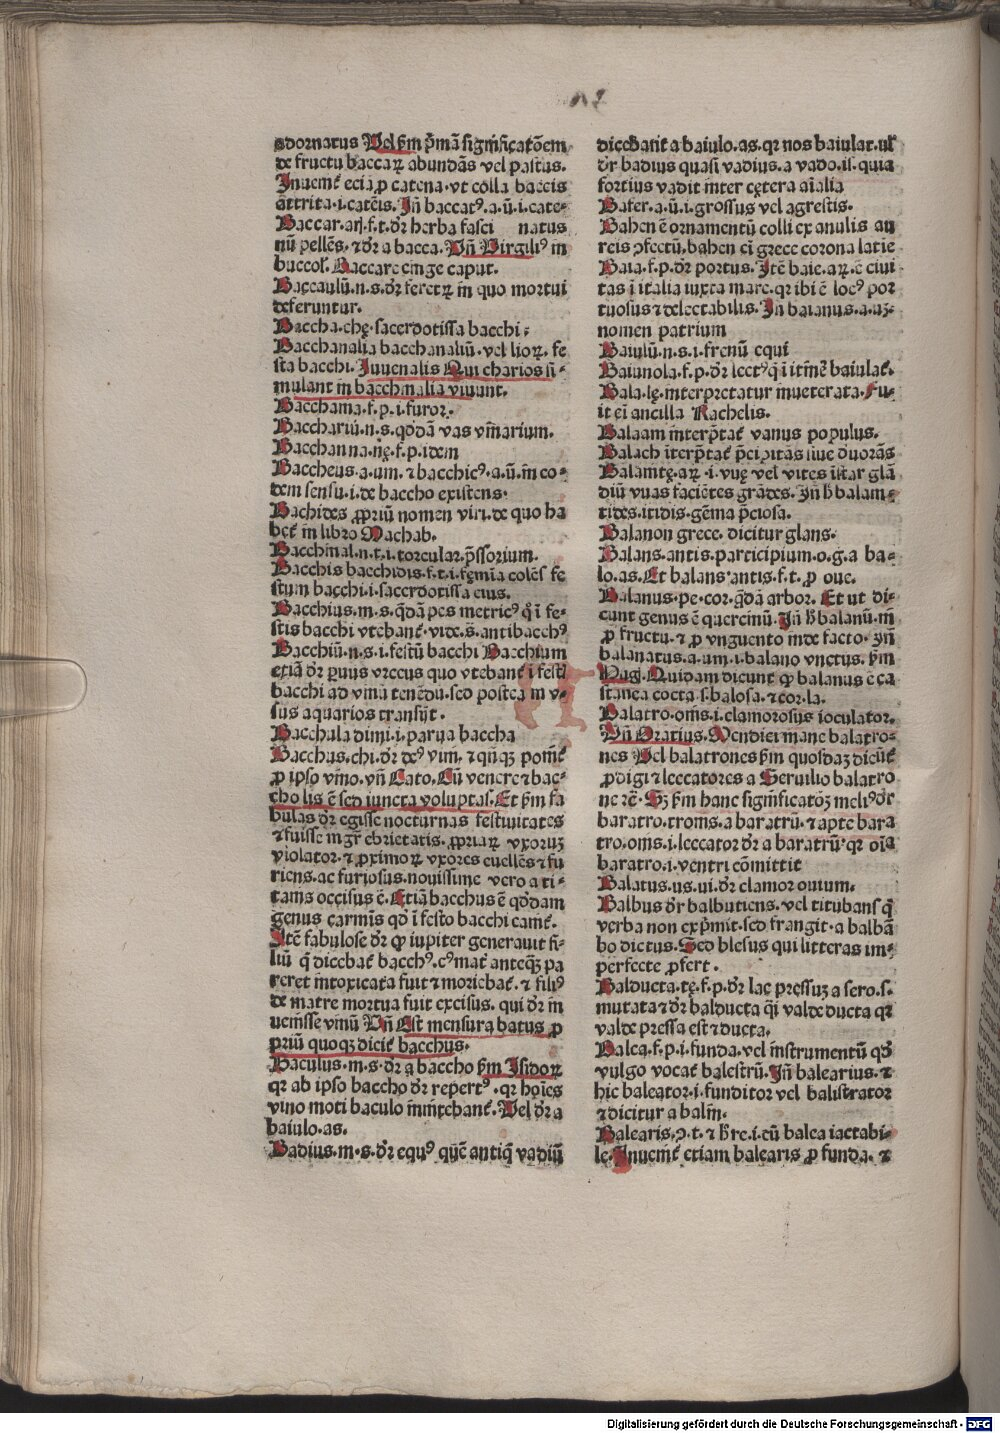 adornatus Vel ẜm p̄mā significatōem
de fructu baccaꝝ abundās vel pastus.
Inuenit᷑ eciā ꝓ catena. vt colla baccis
attrita .i. catēis. Iñ baccatꝰ.a.ū.i. cate-
Baccar.arj.f.t. dr̄ herba fasci natus
nū pellēs. ⁊ dr̄ a bacca. Vñ Virgiliꝰ in
buccol. Baccare cinge caput.
Baccaulū.n.s. dr̄ feretꝝ in quo mortui
deferuntur.
Baccha.chę. sacerdotissa bacchi.
Bacchanalia bacchanaliū. vel lioꝝ. fe
sta bacchi. Iuuenalis Qui charios si-
mulant in bacchinalia viuunt.
Bacchama.f.p.i. furor.
Bacchariū.n.s. qd̄dā vas vinarium.
Bacchanna.nę.f.p. idem
Baccheus.a.um. ⁊ bacchicꝰ.a.ū. in eo-
dem sensu .i. de baccho existens.
Bachides ꝓpriū nomen viri. de quo ha
bet᷑ in libro Machab.
Bacchinal.n.t.i. torcular. p̄ssorium.
Bacchis bacchidis.f.t.i. fęmīa colēs fe
stum bacchi .i. sacerdotissa eius.
Bacchius.m.s. qd̄ā pes metricꝰ q̄ i fe-
stis bacchi vtebant᷑. vide. s. antibacchꝰ
Bacchiū.n.s.i. festū bacchi Bacchium
etiā dr̄ paruus vrceus quo vtebant᷑ i festī
bacchi ad vinū tenēdū. sed postea in v-
sus aquarios transijt.
Bacchula dimi.i. parua baccha
Bacchus.chi. dr̄ deꝰ vini. ⁊ qn̄qꝫ ponit᷑
ꝓ ipso vino. vñ Cato. Cū venere ⁊ bac-
cho lis ē sed iuncta voluptas. Et ẜm fa
bulas dr̄ egisse nocturnas festiuitates
⁊ fuisse mgr̄ ebrietatis. ꝓpriaꝝ vxoruꝫ
violator. ⁊ ꝓximoꝝ vxores euellēs ⁊ fu
riens. ac furiosus. nouissime vero a ti-
tanis occisus ē. Etiā bacchus ē qd̄dam
genus carmīs qd̄ i festo bacchi canit᷑.
Itē fabulose dr̄ ꝙ iupiter generauit fi-
liū q̄ dicebat᷑ bacchꝰ. cꝰ mat᷑ anteqꝫ pa
reret intoxicata fuit ⁊ moriebat᷑. ⁊ filiꝰ
de matre mortua fuit excisus. qui dr̄ in
uenisse vinū Vñ Est mensura batus ꝓ
priū quoqꝫ dicit᷑ bacchus.
Baculus.m.s. dr̄ a baccho ẜm Isidoꝝ
qꝛ ab ipso baccho dr̄ repertꝰ. qꝛ hoīes
vino moti baculo innitebant᷑. Vel dr̄ a
baiulo.as.
Badius.m.s. dr̄ equꝰ quē antiq̄ vadiū
dicebant a baiulo.as. qꝛ nos baiulat. ul
dr̄ badius quasi vadius. a vado.is. quia
fortius vadit inter cętera aīalia
Bafer.a.ū.i. grossus vel agrestis.
Bahen ē ornamentū colli ex anulis au
reis ꝯfectū. bahen ei grece corona latie
Baia.f.p. dr̄ portus. Itē baie.aꝝ. ē ciui
tas i italia iuxta mare. qꝛ ibi ē locꝰ por
tuosus ⁊ delectabilis. Iñ baianus.a.uꝫ-
nomen patrium
Baiulū.n.s.i. frenū equi
Baiunola.f.p. dr̄ lectꝰ q̄ i itinē baiulat᷑.
Bala.lę. interpretatur inueterata. Fu-
it ei ancilla Rachelis.
Balaam interp̄tat᷑ vanus populus.
Balach iterp̄tat᷑ p̄cipitās siue deuorās
Balamtę.aꝝ .i. vuę vel vites istar glā
diū vuas faciētes grādes. Iñ h̄ balam-
tides.itidis. gēma p̄ciosa.
Balanon grece. dicitur glans.
Balans.antis. participium. o.g. a ba-
lo.as. Et balans antis.f.t. ꝓ oue.
Balanus.pe.cor. qd̄ā arbor. Et ut di-
cunt genus ē quercinū. Iñ h̄ balanū.ni
ꝓ fructu. ⁊ ꝓ vnguento inde facto. Iñ
balanatus.a.um.i. balano vnctus. ẜm
Hug. Quidam dicunt ꝙ balanus ē ca
stanea cocta. s. balosa. ⁊ cor. la.
Balatro.onis.i. clamorosus ioculator.
Vñ Oratius. Mendici mane balatro-
nes Vel balatrones ẜm quosdaꝫ dicūt᷑
ꝓdigi ⁊ leccatores a Seruilio balatro
ne ⁊c̄. Sꝫ ẜm hanc significatōꝫ meliꝰ dr̄
baratro.tronis. a baratrū. ⁊ apte bara
tro.onis.i. leccator dr̄ a baratrū. qꝛ oīa
baratro .i. ventri cōmittit
Balatus.us.ui. dr̄ clamor ouium.
Balbus dr̄ balbutiens. vel titubans q̄
verba non exp̄mit. sed frangit. a balba
bo dictus. Sed blesus qui litteras im-
perfecte ꝓfert.
Balducta.tę.f.p. dr̄ lac pressuꝫ a sero. s.
mutata ⁊ dr̄ balducta q̄i valde ducta qꝛ
valde pressa est ⁊ ducta.
Balea.f.p.i. funda. vel instrumentū qd̄
vulgo vocat᷑ balestrū. Iñ balearius. ⁊
hic baleator .i. funditor vel balistrator
⁊ dicitur a balin.
Balearis.ꝯ.t. ⁊ h̄ re.i. cū balea iactabi-
le. Inuenit᷑ etiam balearis ꝓ funda. ⁊
Digitalisierung gefördert durch die Deutsche Forschungsgemeinschaft - DFG